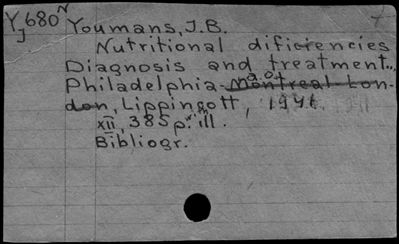 Y680 N Youmans, J.B.
J
Nutritional dificiencies
Diagnosis and treatment.,
Philadelphia a.o. Montreal Lon-
don, Lippingott, 1941.
XII, 385 p. ill.
Bibliogr.